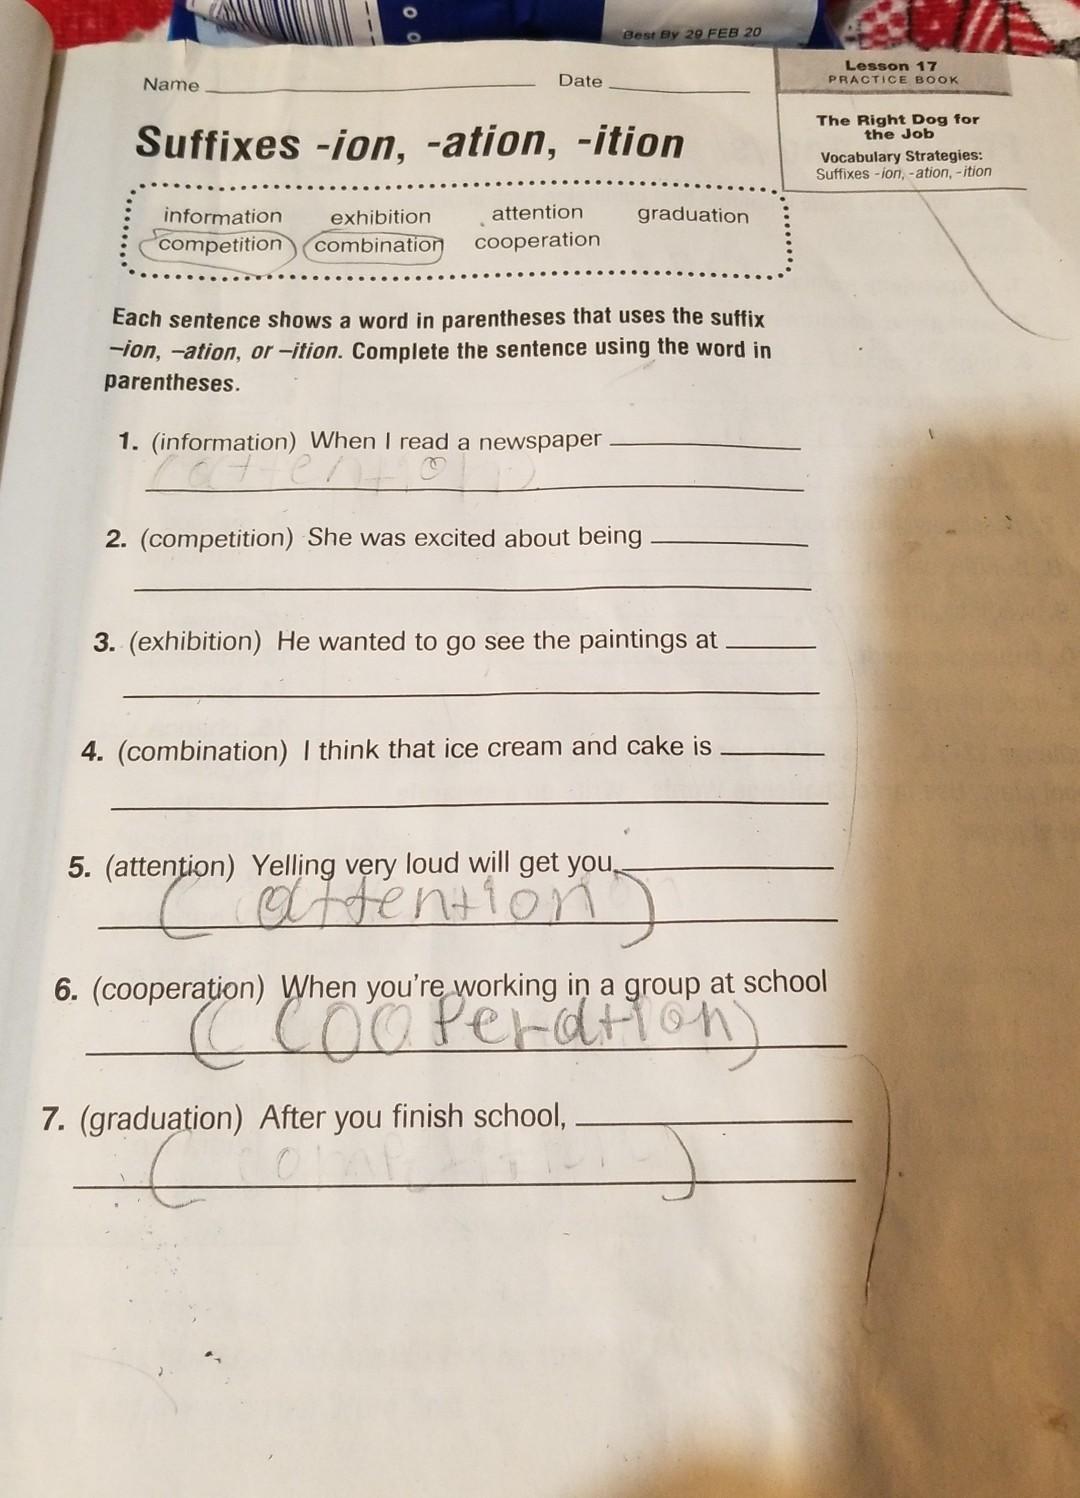 Best By 29 FEB 20
Name Date
Lesson 17
PRACTICE BOOK
The Right Dog for
the Job
Vocabulary Strategies:
Suffixes -ion, -ation, -ition
Suffixes -ion, -ation, -ition
information exhibition attention graduation
competition combination cooperation
Each sentence shows a word in parentheses that uses the suffix
–ion, –ation, or –ition. Complete the sentence using the word in
parentheses.
1. (information) When I read a newspaper
(attention)
2. (competition) She was excited about being
3. (exhibition) He wanted to go see the paintings at
4. (combination) I think that ice cream and cake is
5. (attention) Yelling very loud will get you
(attention)
6. (cooperation) When you're working in a group at school
(cooperation)
7. (graduation) After you finish school,